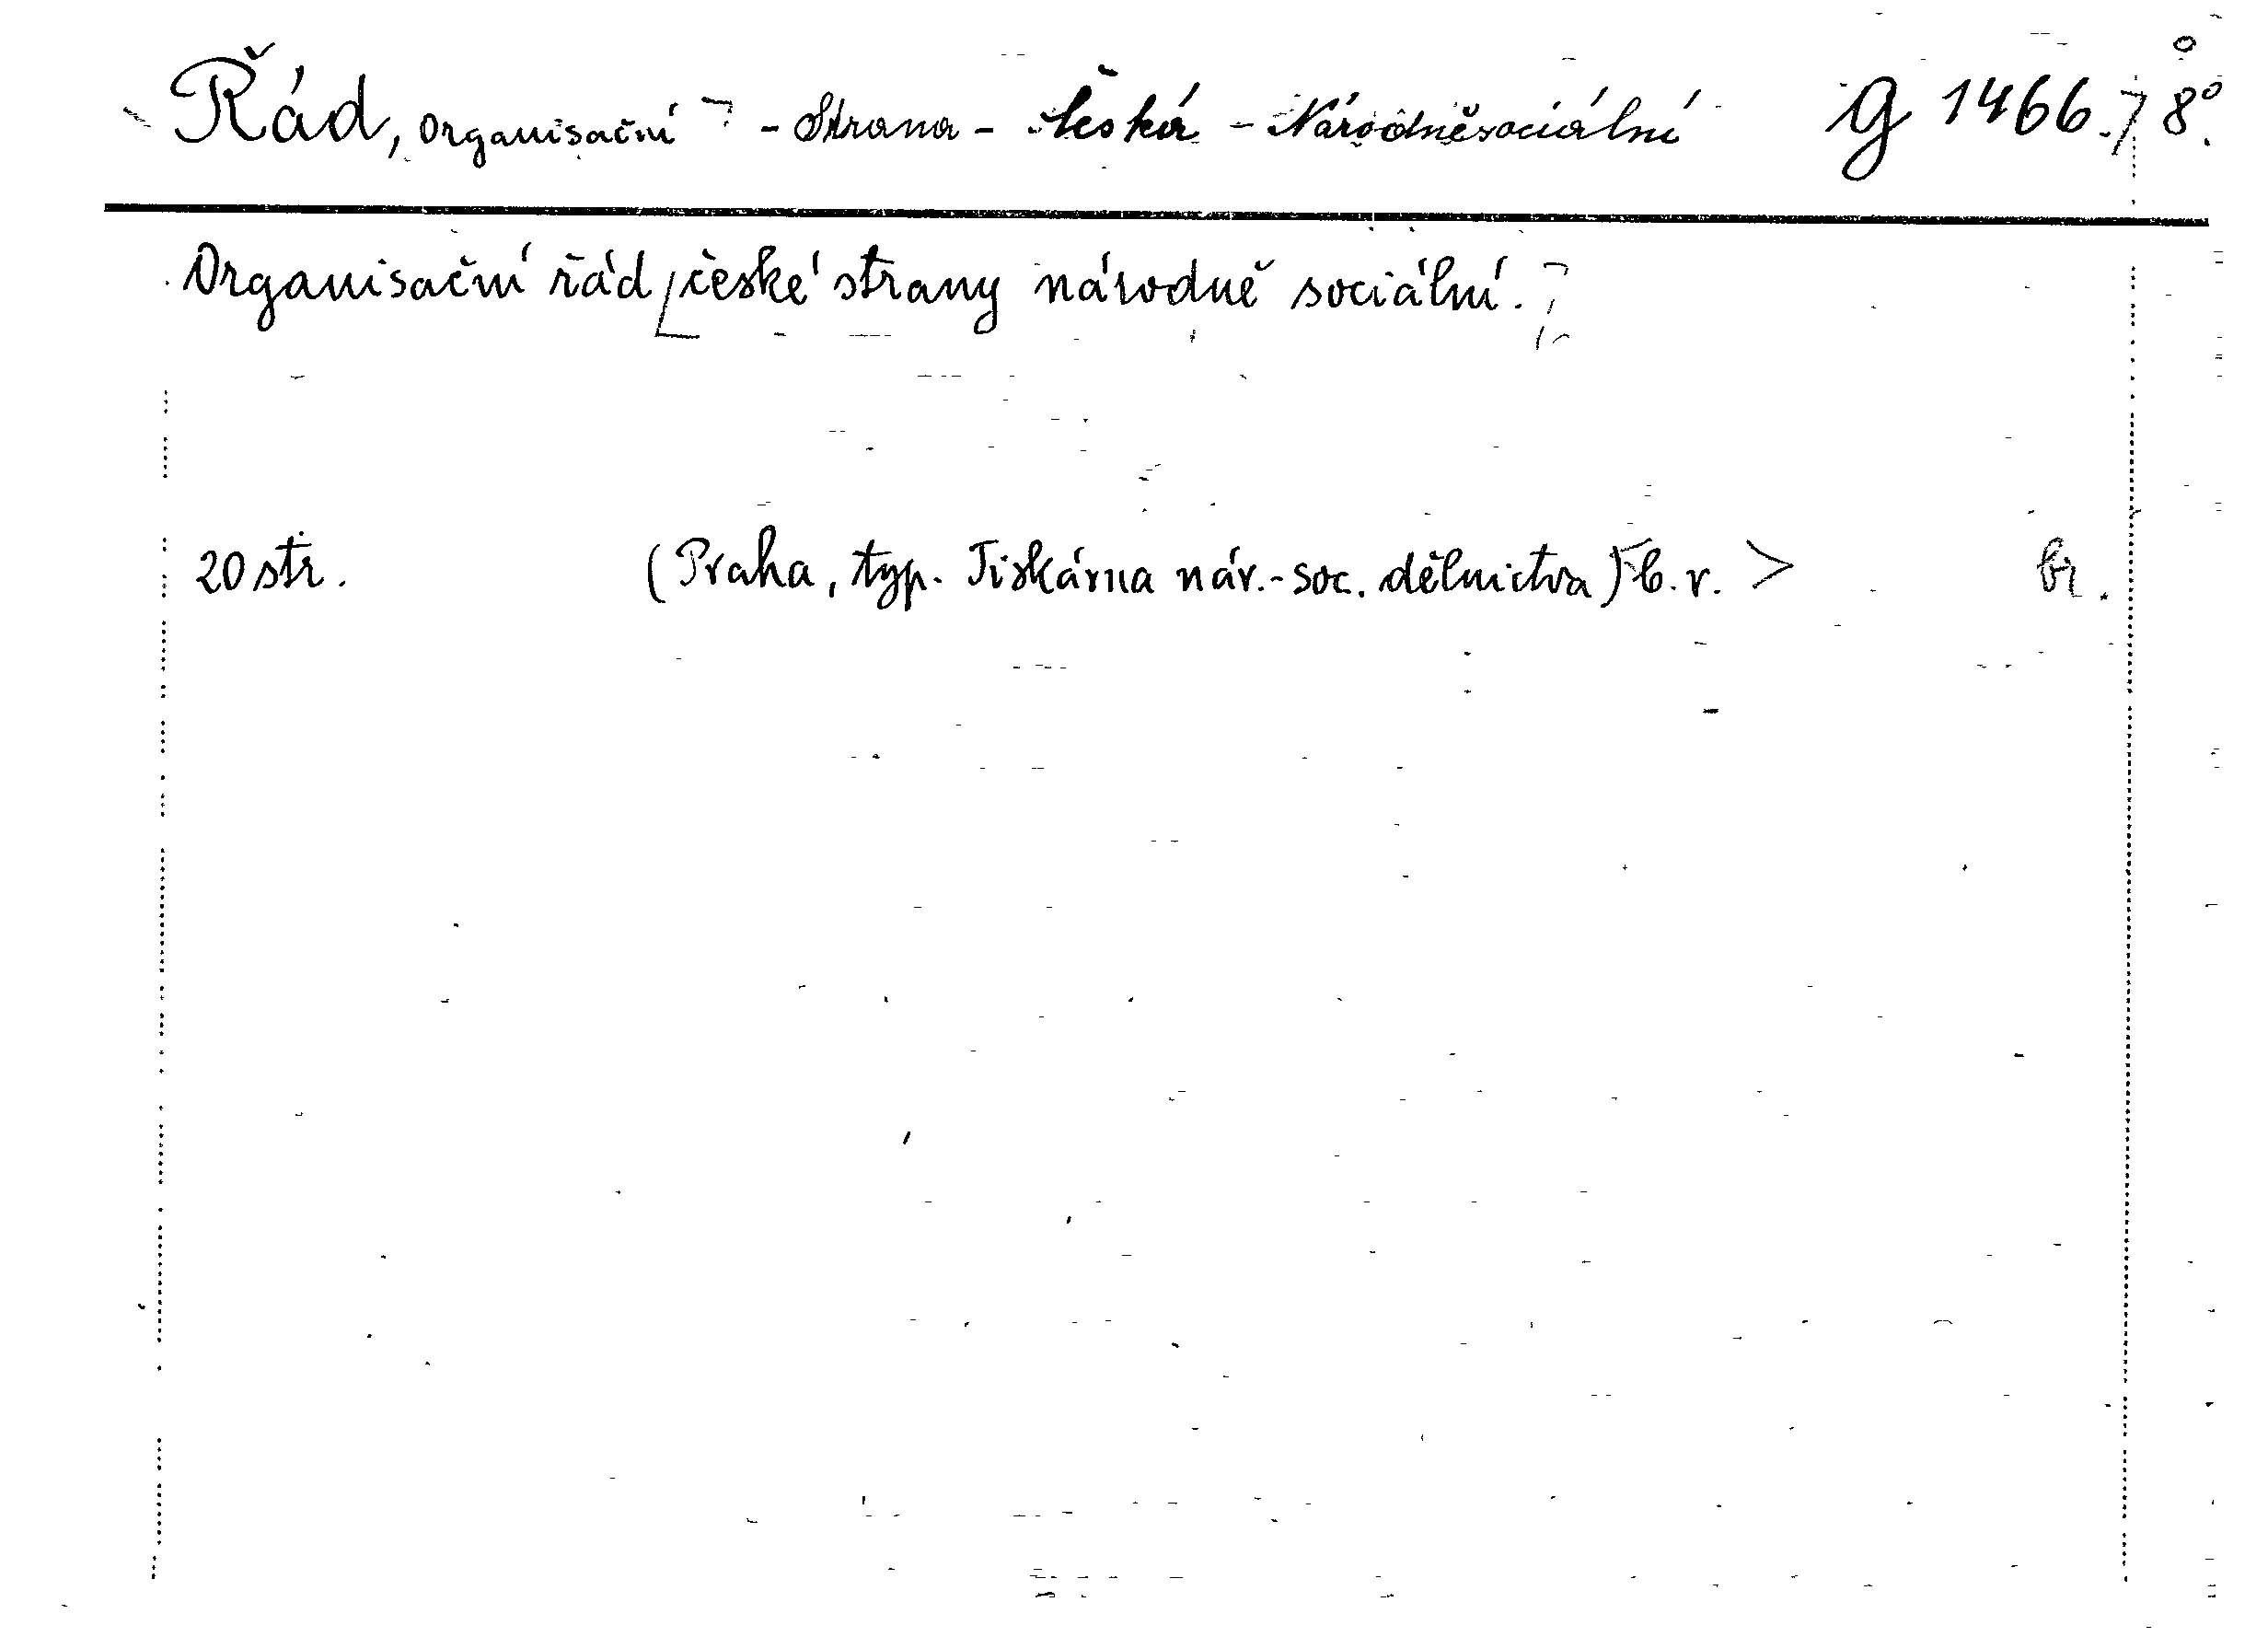 Řád, organisační - Strana - Česká - Národněsociální g 1466. 8°.
Organisační řád [české strany národně sociální.]
20 str. (Praha, typ. Tiskárna nár.-soc. dělnictva) b. r. > br.